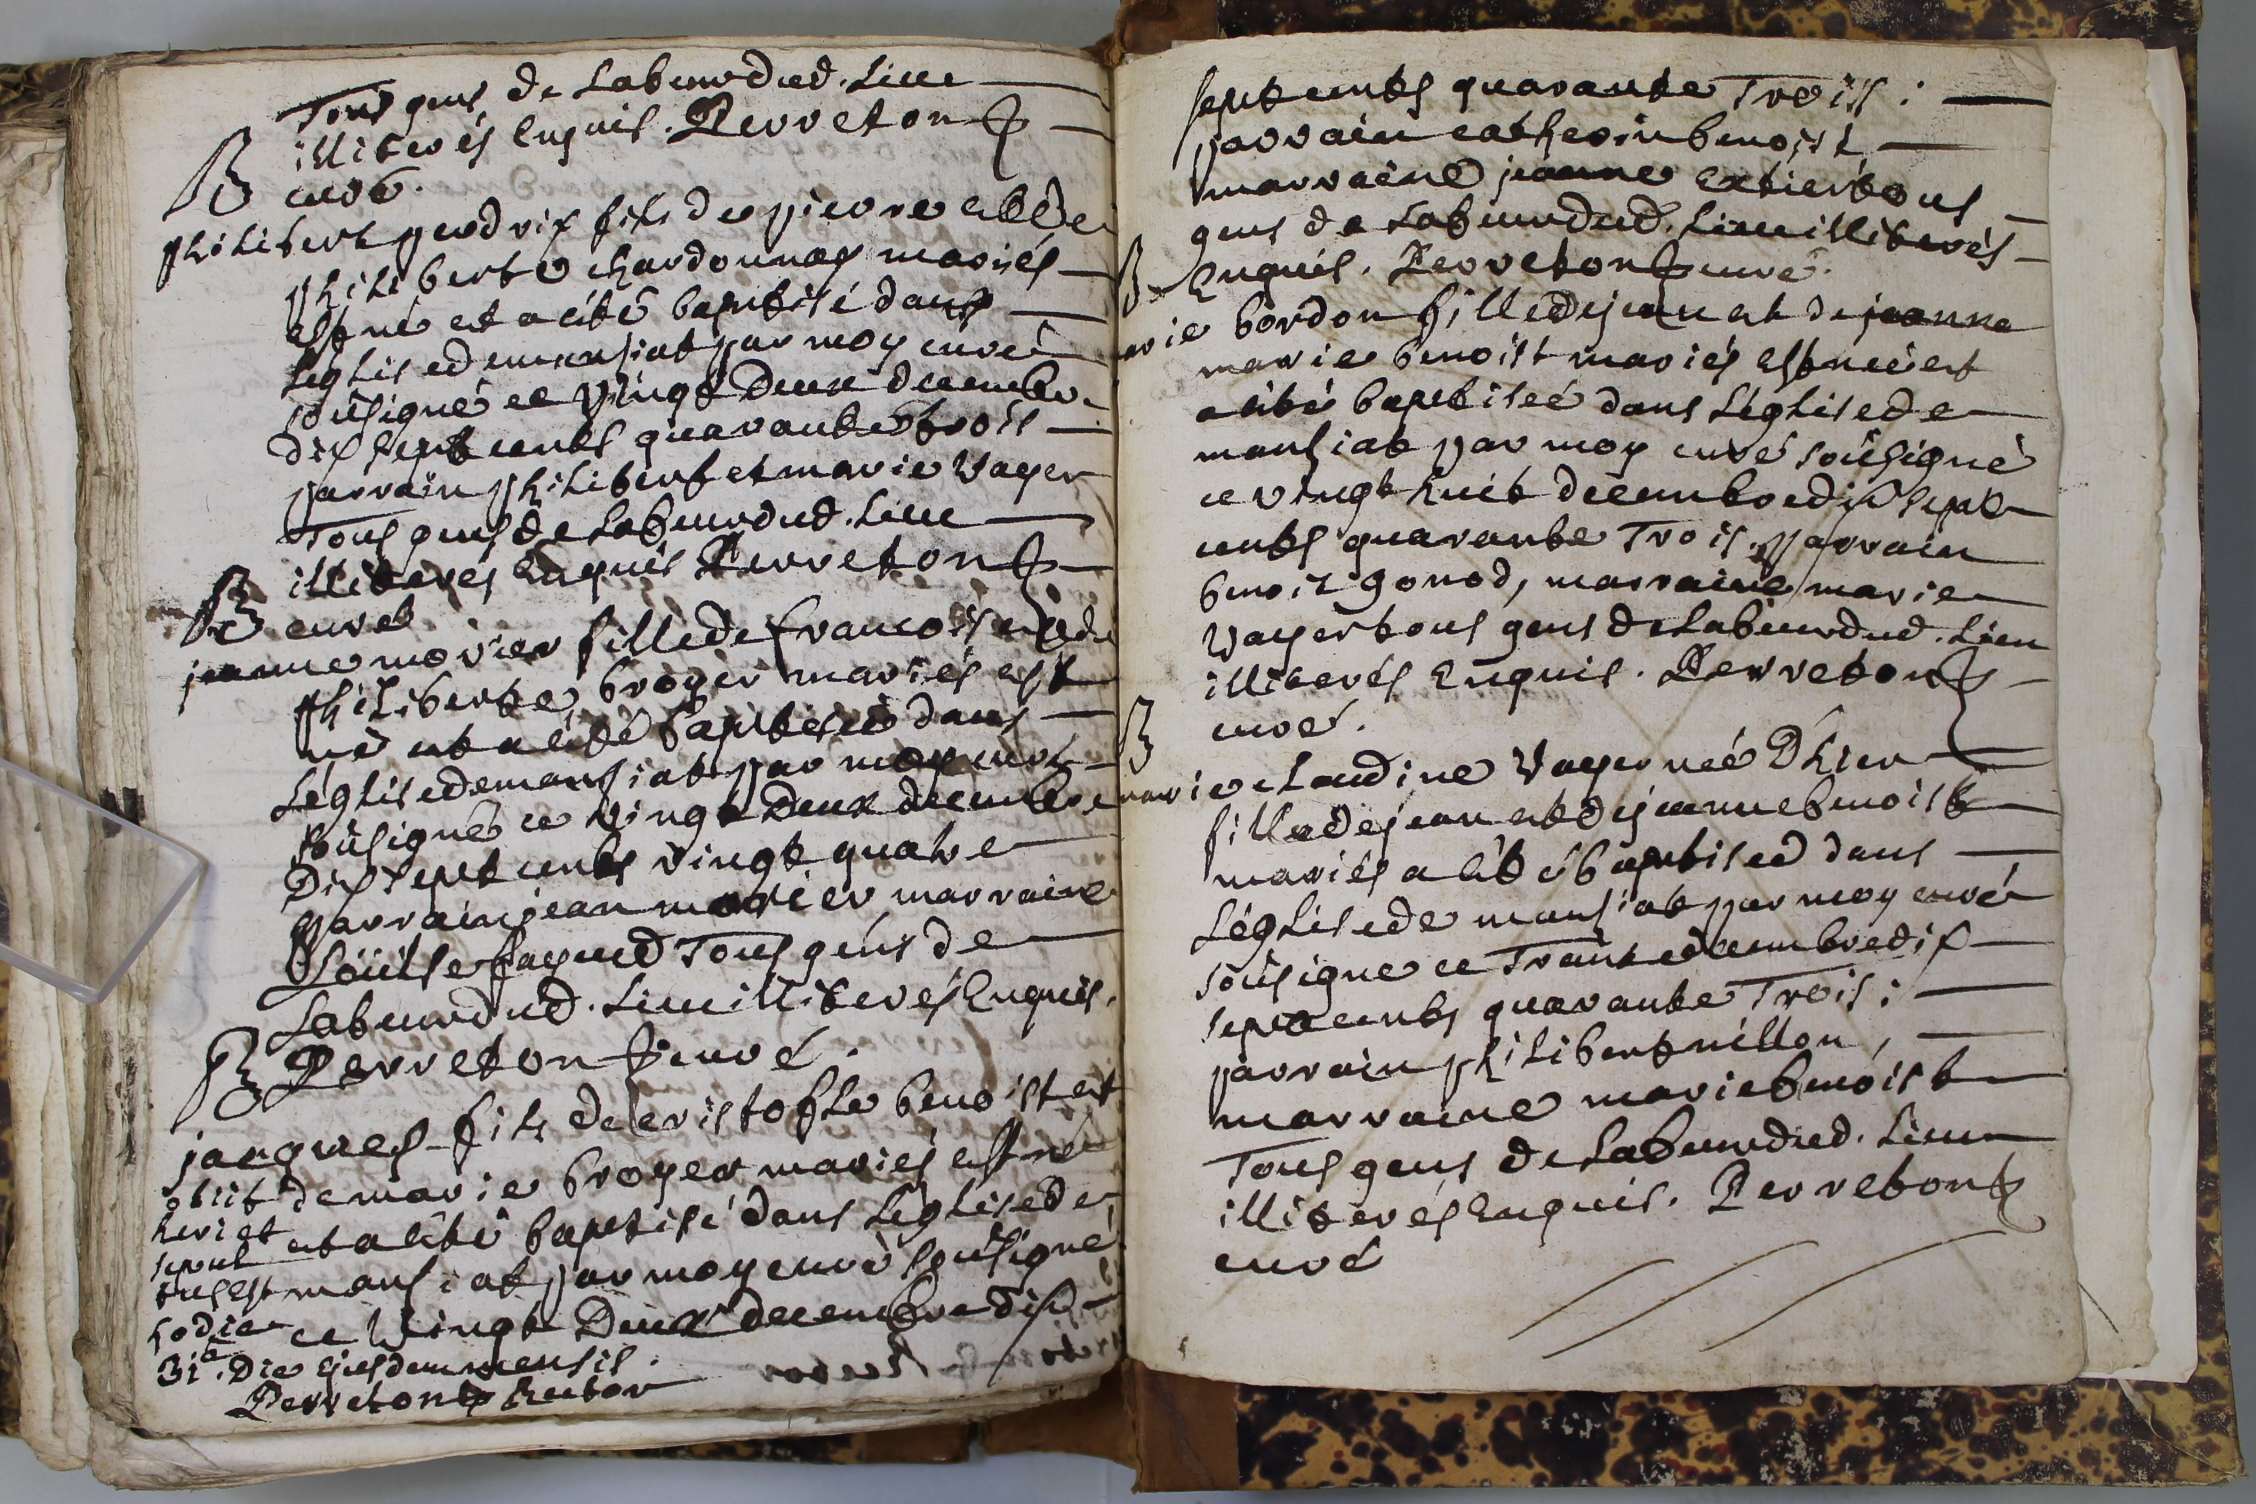 Tous gens de Labeurdud. Lieu
illiterés Enquis. Perreton
curé.
B
philibert perdrix fils de pierre et de
philiberte chardonnay mariés
est né et a été baptisé dans
Léglise de mansiat par moy curé
soûsigné ce vingt Deux decembre
dix sept cents quarante trois
parrain philibert et marie Vayer
Tous gens de Labeurdud. Lieu
illiterés Enquis Perreton
curé
B
jeanne morier fille de francois et de
philiberte broyer mariés est
né et a été baptiseé dans
Léglise de mansiat par moy curé
soûsigné ce vingt Deux decembre
Dix sept cents vingt quatre
parrain jean morier marraine
Loüise fayud Tous gens de
Labeurdud. Lieu illiterés Enquis.
Perreton curé.
B
jacques fils de cristofle benoist et
de marie broyer mariés est né
et a été baptisé dans Léglise de
mansiat par moy curé soûsigné
ce Vingt Deux decembre dix
obiit
heri et
sepul
tus est
hodie
31a. Die ejusdem mensis.
Perreton Rector
sept cents quarante Trois :
parrain catherin benoist
marraine jeanne tous
gens de Labeurdud. Lieu illiterés
Enquis. Perreton curé.
B
marie bordon fille de jean et de jeanne
marie benoist mariés est neé et
a été baptiseé dans Léglise de
mansiat par moy curé soûsigné
ce vingt huit decembre dix sept
cents quarante Trois. parrain
benoit gonod, marraine marie
Vayer tous gens de Labeurdud. Lieu
illiterés Enquis. Perreton
curé.
B
marie claudine Vayer neé D'hier
fille de jean et de jeanne benoist
mariés a été baptiseé dans
Léglise de mansiat par moy curé
soûsigné ce Trente decembre dix
sept cents quarante Trois :
parrain philibert nillon,
marraine marie benoist
Tous gens de Labeurdud. Lieu
illiterés Enquis. Perreton
curé